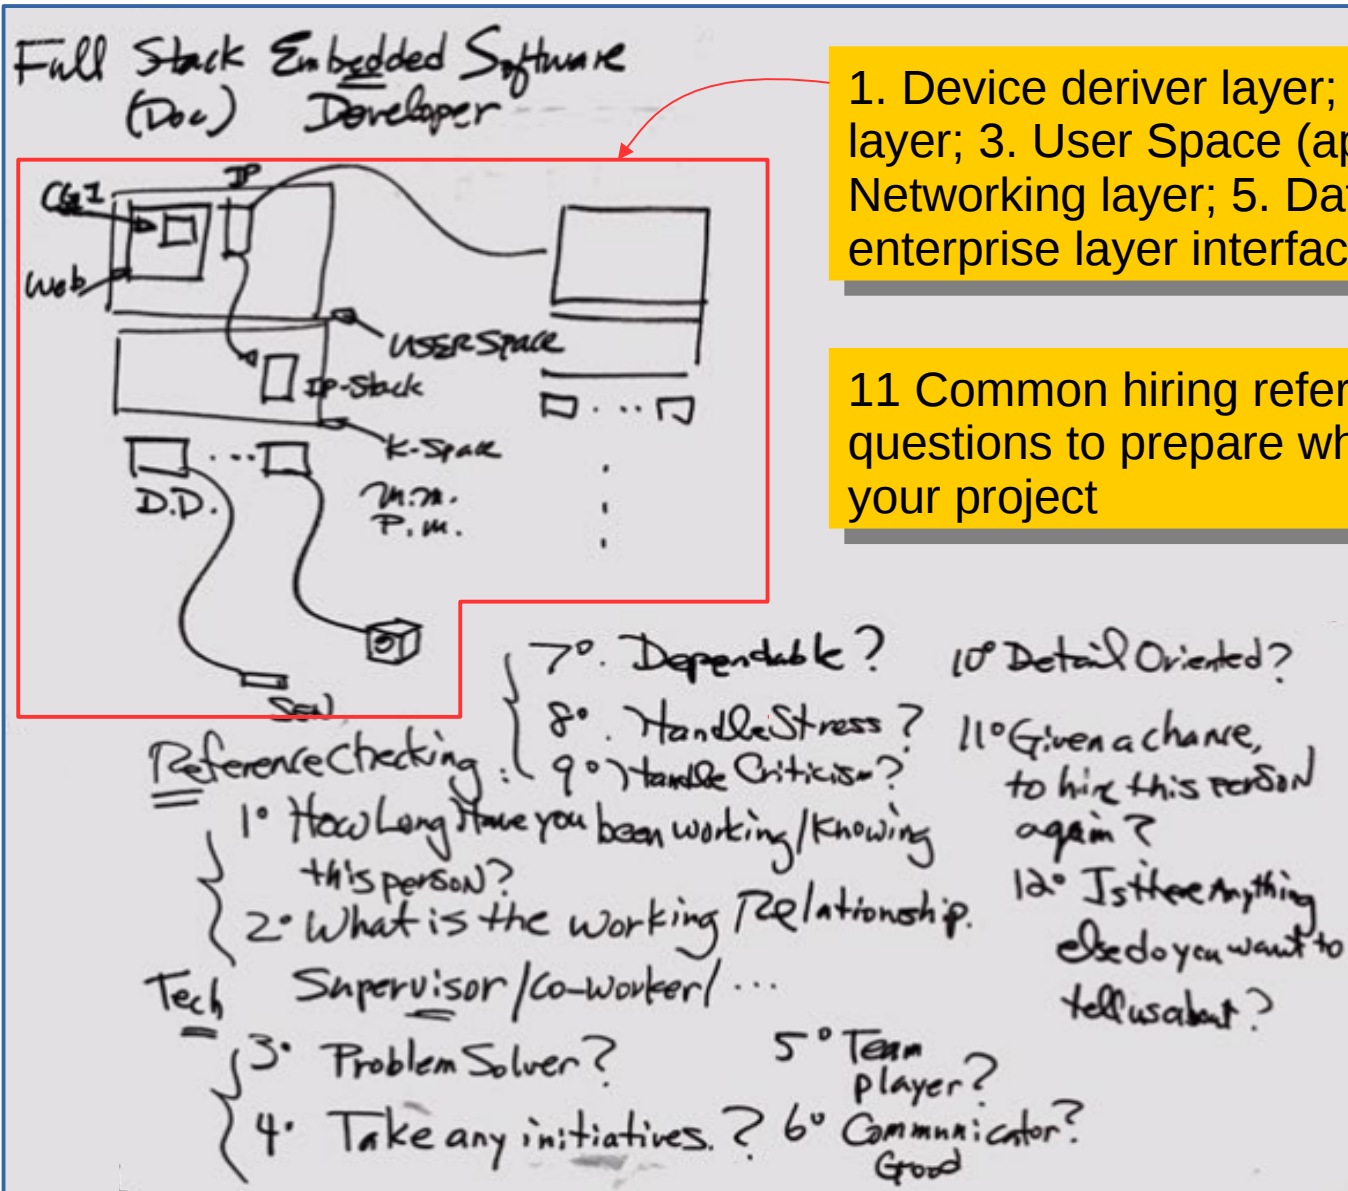 Full Stack Embedded Software
(Doc) Developer
1. Device deriver layer;
layer; 3. User Space (ap
Networking layer; 5. Da
enterprise layer interfac
CGI
IP
Web
USER Space
IP-Stack
K-Space
D.D.
m.m.
P.m.
SEN.
11 Common hiring refer
questions to prepare wh
your project
Reference Checking:
1° How Long Have you been working/Knowing
this person?
2° What is the working Relationship.
Tech Supervisor/Co-worker/...
3° Problem Solver?
4° Take any initiatives.?
5° Team
player?
6° Communicator?
Good
7°. Dependable?
8°. Handle Stress?
9° Handle Criticism?
10° Detail Oriented?
11° Given a chance,
to hire this person
again?
12° Is there Anything
else do you want to
tell us about?